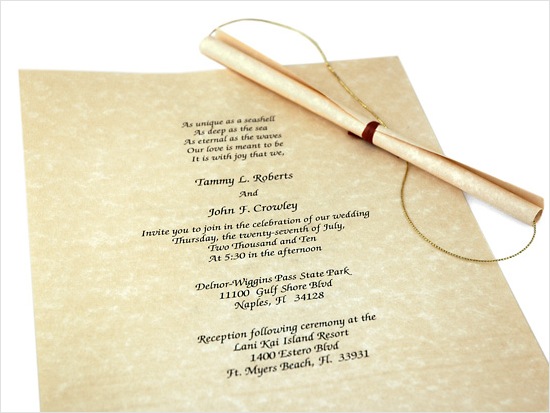 As unique as a seashell
As deep as the sea
As eternal as the waves
Our love is meant to be
It is with joy that we,
Tammy L. Roberts
And
John F. Crowley
Invite you to join in the celebration of our wedding
Thursday, the twenty-seventh of July,
Two Thousand and Ten
At 5:30 in the afternoon
Delnor-Wiggins Pass State Park
11100 Gulf Shore Blvd
Naples, Fl 34128
Reception following ceremony at the
Lani Kai Island Resort
1400 Estero Blvd
Ft. Myers Beach, Fl. 33931